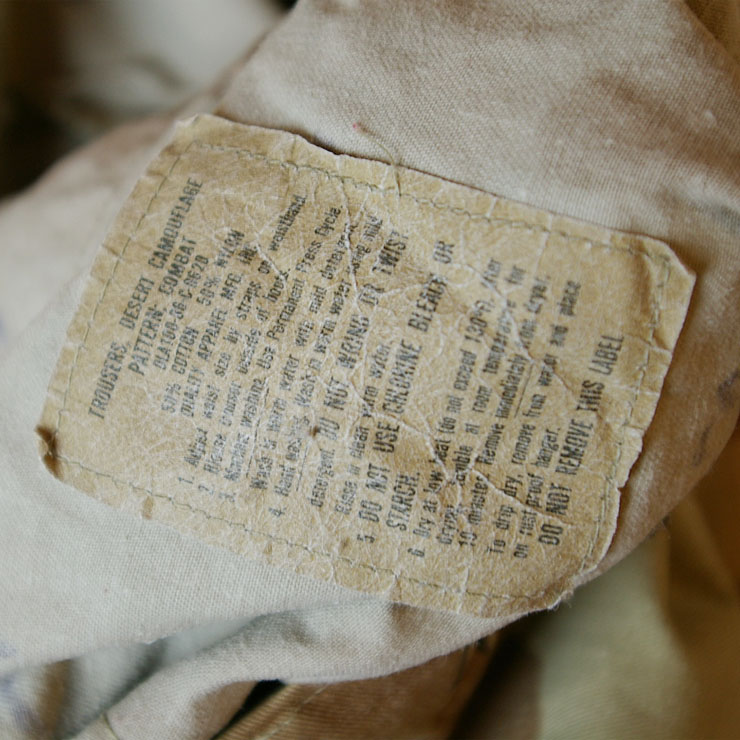 TROUSERS, DESERT CAMOUFLAGE
PATTERN: COMBAT
DLA100-86-C-0620
50% COTTON 50% NYLON
QUALITY APPAREL MFG
1. Adjust waist size by straps on waistband.
2. blouse trouser inside of boots.
3. Machine washing. Use Permanent Press Cycle
Wash in warm water with mild detergent.
4. Hand Wash in warm water using mild
detergent. DO NOT WRING OR TWIST
Rinse in clean warm water.
5. DO NOT USE CHLORINE BLEACH OR
STARCH.
6. Dry at low heat (do not exceed 130°F. After
tumble at room temperature for
10 minutes. Remove immediately from dryer.
To drip dry, remove from water and place
on rust proof hanger.
DO NOT REMOVE THIS LABEL